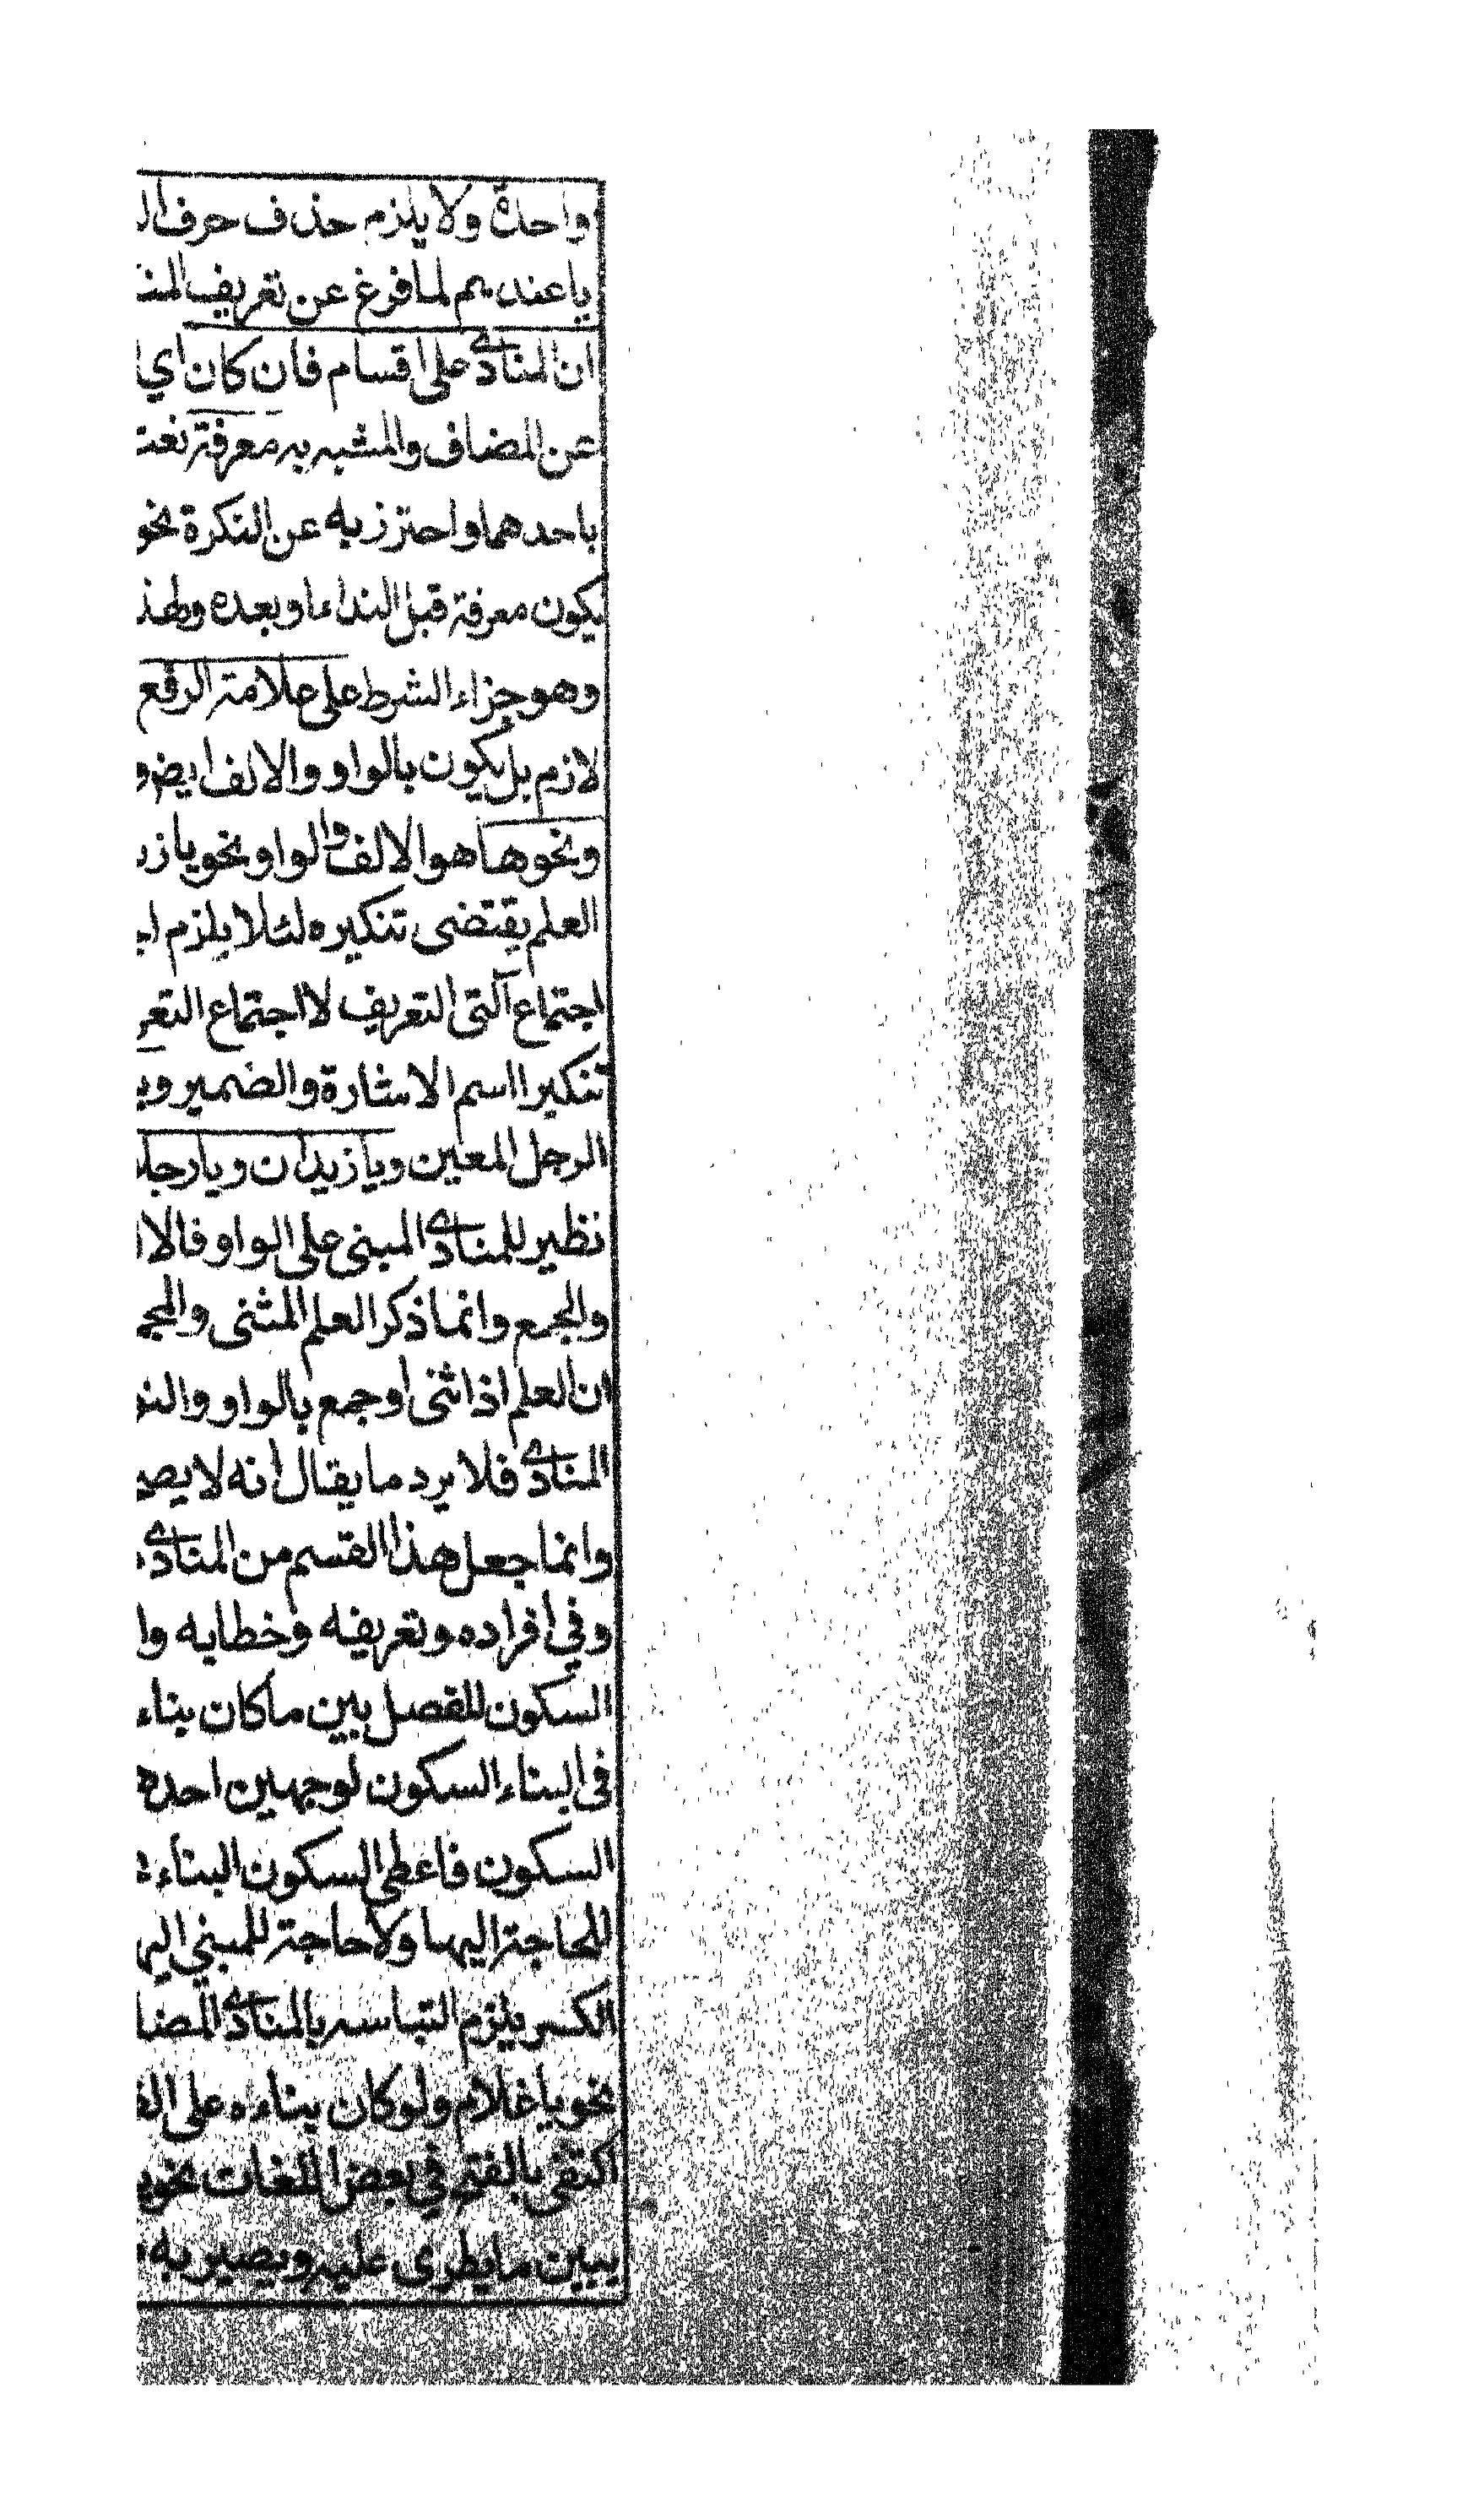 واحدة ولا يلزم حذف حرف
يا عندهم لما فرغ عن تعريف
ان المنادى على اقسام فان كان اي
عن المضاف والمشبه به معرفة
باحدهما واحترز به عن النكرة نحو
يكون معرفة قبل النداء او بعده
وهو جزاء الشرط على علامة الرفع
لازم بل يكون بالواو والالف ايض
ونحوها هو الالف والواو نحو يا
العلم يقتضى تنكيره لئلا يلزم
اجتماع آلتى التعريف لا اجتماع
تنكير اسم الاشارة والضمير
الرجل المعين ويا زيدان ويا
نظير للمنادى المبنى على الواو
والجمع وانما ذكر العلم المثنى
ان العلم اذا ثنى او جمع بالواو
المنادى فلا يرد ما يقال انه لا
وانما جعل هذا القسم من المنادى
وفي افراده وتعريفه وخطابه
السكون للفصل بين ما كان بناء
فى البناء السكون لوجهين
السكون فاعطى السكون البناء
للحاجة اليها ولا حاجة للمبني
الكسر يلزم التباسه بالمنادى
نحو يا غلام ولو كان بناءه على
اكتفى بالفتح في بعض اللغات
يبين ما يطرى عليه ويصير به